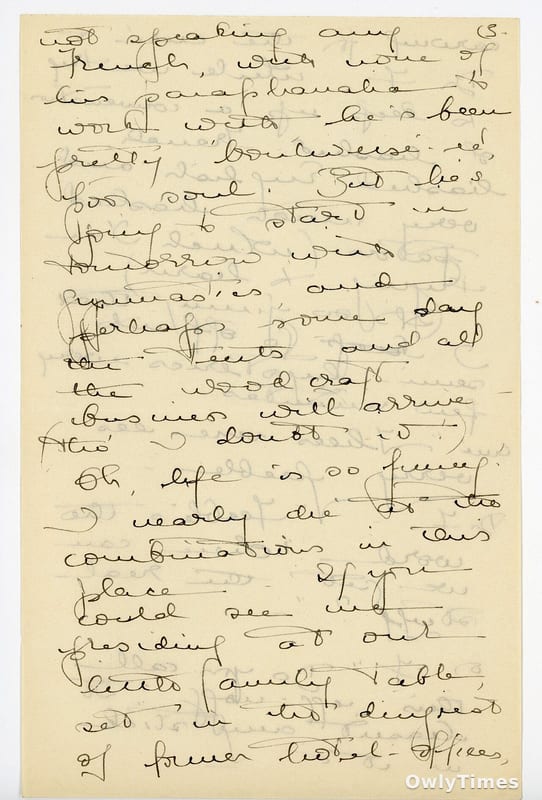 (3.
not speaking any
French, with none of
his paraphanalia to
work with he's been
pretty "bouleversé"-ed,
poor soul. But he's
going to start in
tomorrow with
gymnastics, and
perhaps some day
the tents and all
the wood craft
business will arrive
(tho' I doubt it!)
Oh, life is so funny.
I nearly die at the
combinations in this
place. If you
could see me
presiding at our
little family table,
set in the dingiest
of former hotel-offices,
OwlyTimes